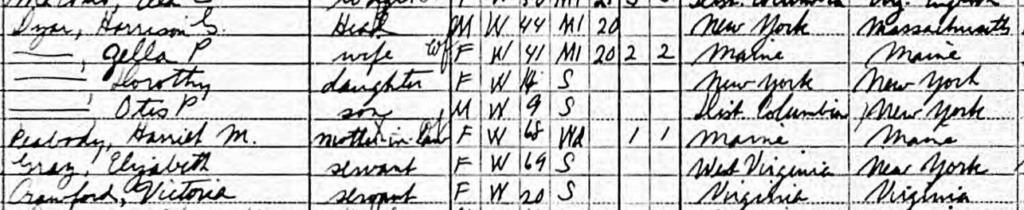 Dyar, Harrison G. Head M W 44 M1 20 New York Massachusetts
——, Zella P wife F W 41 M1 20 2 2 Maine Maine
——, Dorothy daughter F W 14 S New York New York
——, Otis P son M W 9 S Dist Columbia New York
Peabody, Harriet M. mother-in-law F W 68 Wd 1 1 Maine Maine
Gray, Elizabeth servant F W 69 S West Virginia New York
Crawford, Victoria servant F W 20 S Virginia Virginia